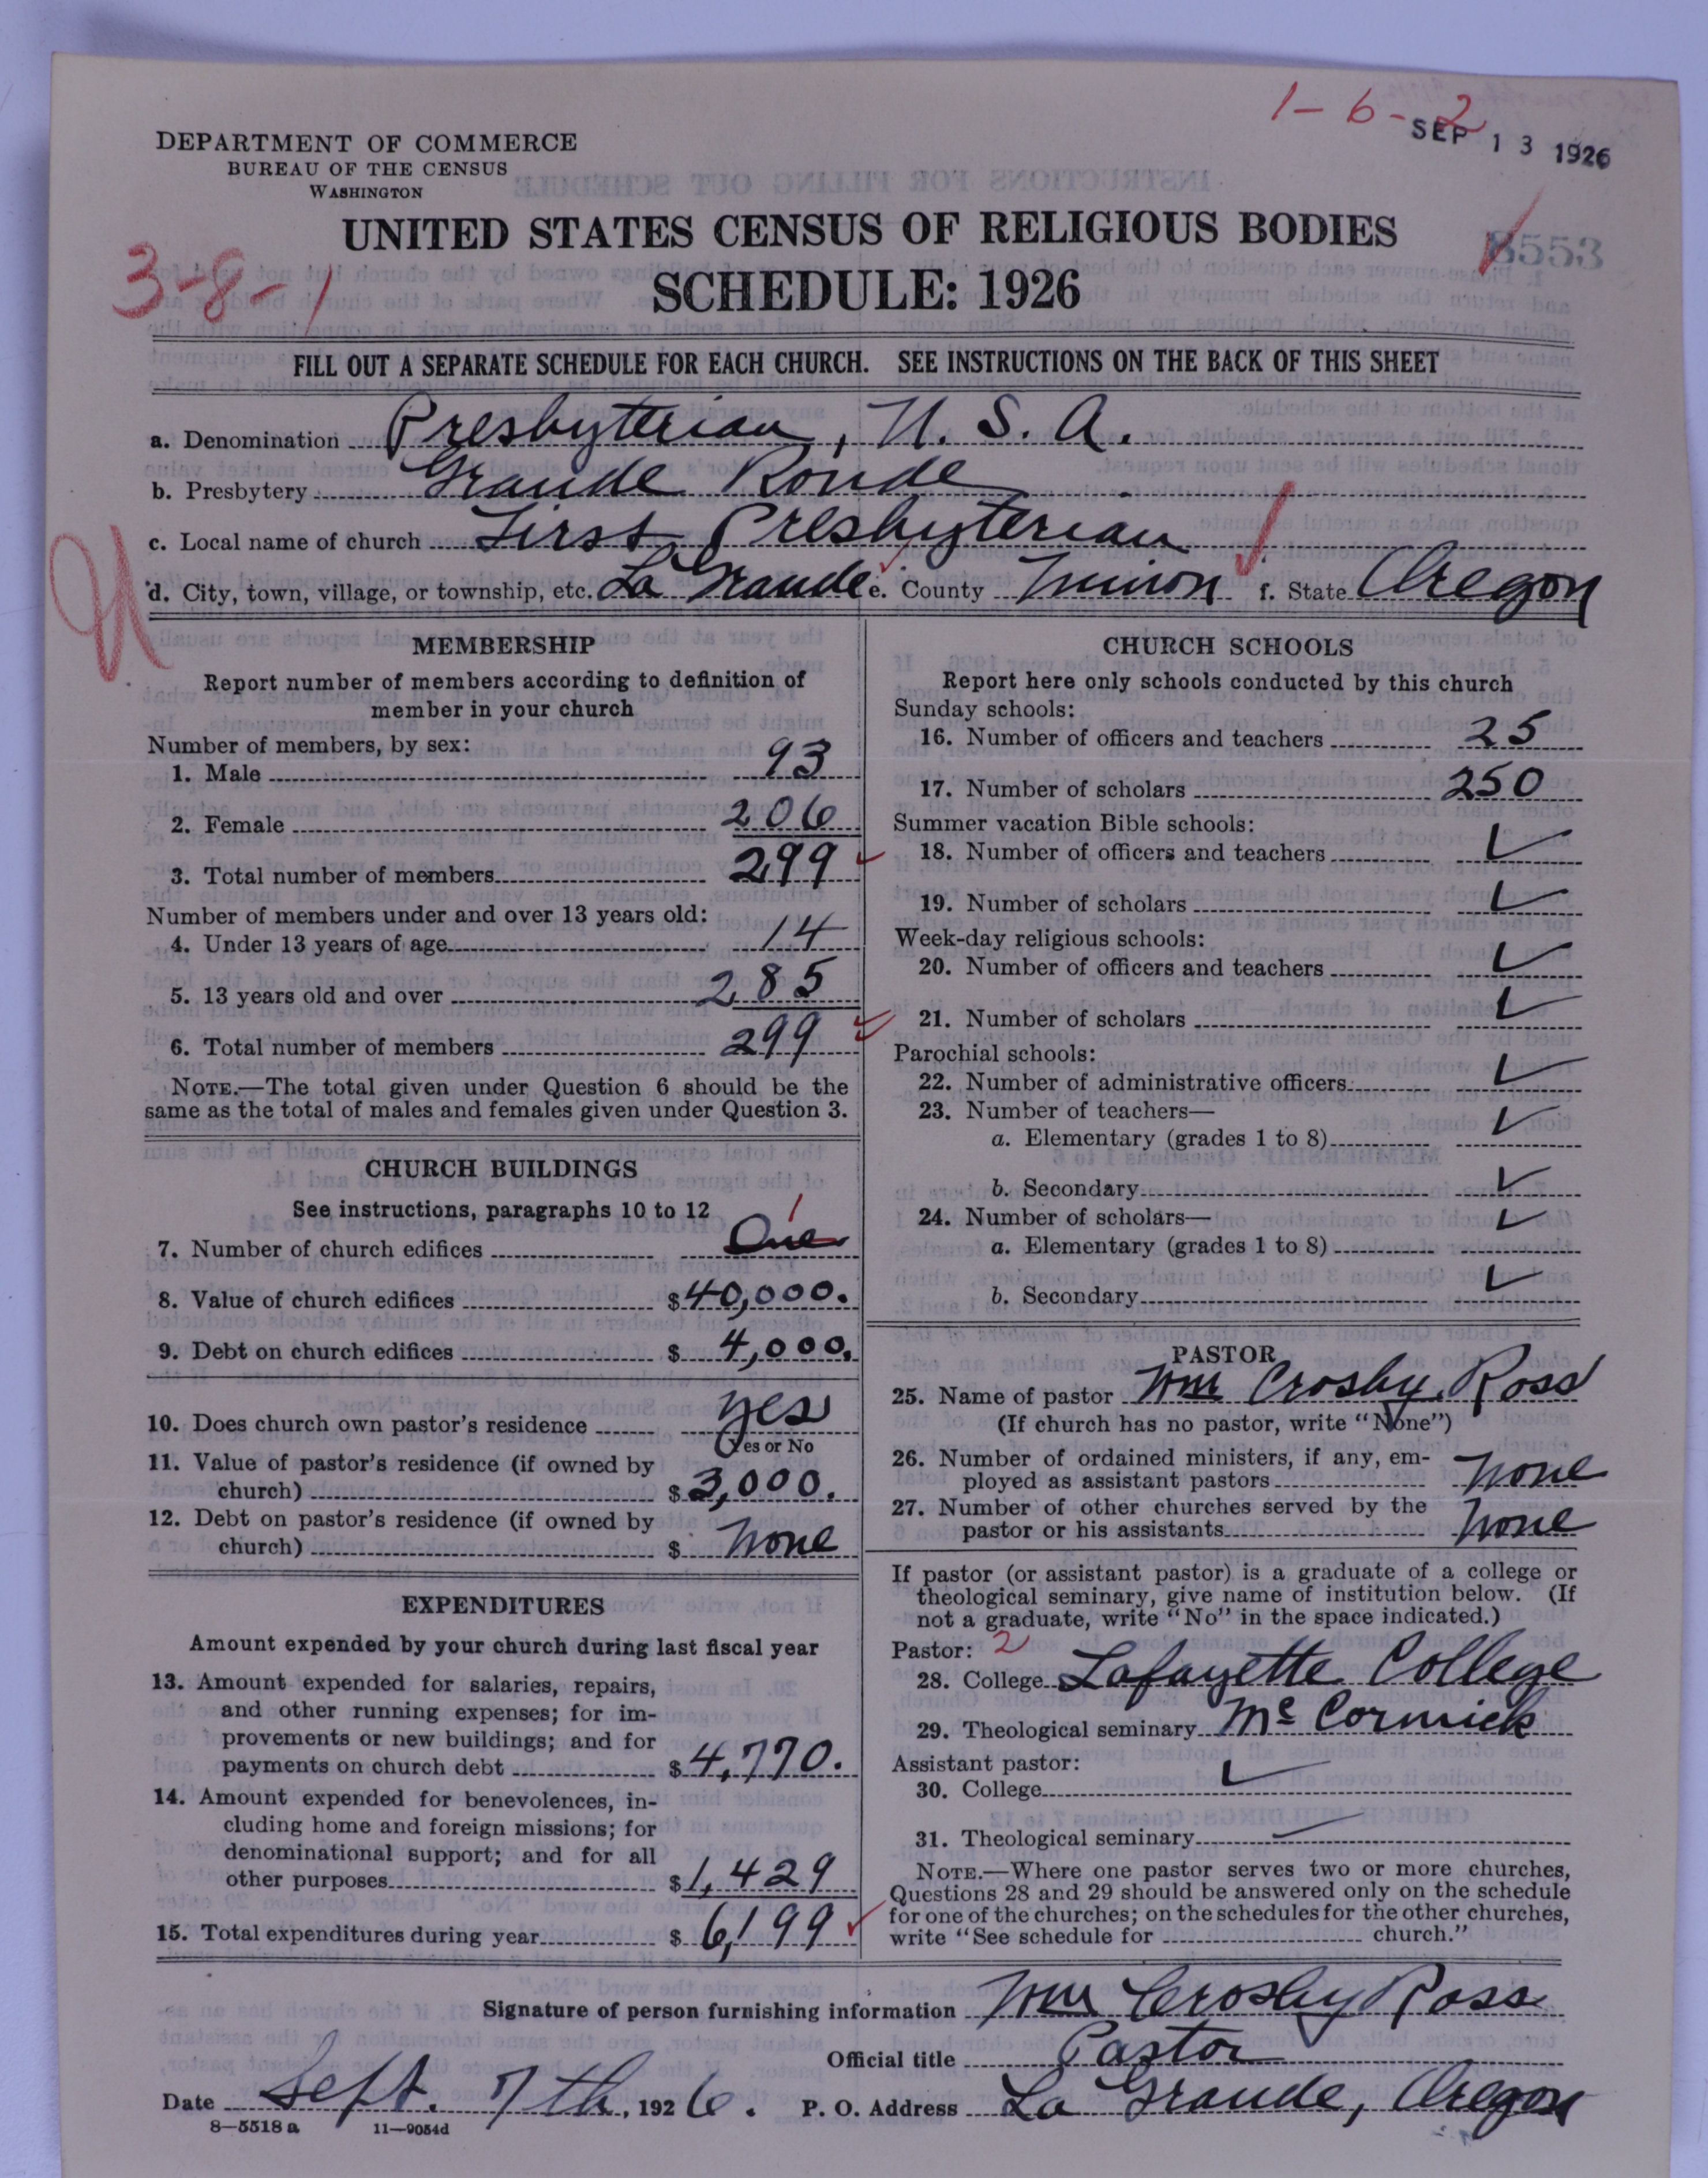 1-6-2
SEP 13 1926
DEPARTMENT OF COMMERCE
BUREAU OF THE CENSUS
WASHINGTON
UNITED STATES CENSUS OF RELIGIOUS BODIES
8553
3-8-1
SCHEDULE: 1926
FILL OUT A SEPARATE SCHEDULE FOR EACH CHURCH. SEE INSTRUCTIONS ON THE BACK OF THIS SHEET
a. Denomination Presbyterian, U. S. A.
b. Presbytery Grande Ronde
c. Local name of church First Presbyterian
d. City, town, village, or township, etc. La Grande e. County Union f. State Oregon
MEMBERSHIP
Report number of members according to definition of
member in your church
Number of members, by sex:
1. Male 93
2. Female 206
3. Total number of members 299
Number of members under and over 13 years old:
4. Under 13 years of age 14
5. 13 years old and over 285
6. Total number of members 299
NOTE.—The total given under Question 6 should be the
same as the total of males and females given under Question 3.
CHURCH BUILDINGS
See instructions, paragraphs 10 to 12
1
7. Number of church edifices One
8. Value of church edifices $40,000.
9. Debt on church edifices $ 4,000.
10. Does church own pastor's residence yes
Yes or No
11. Value of pastor's residence (if owned by
church) $3,000.
12. Debt on pastor's residence (if owned by
church) $ none
EXPENDITURES
Amount expended by your church during last fiscal year
13. Amount expended for salaries, repairs,
and other running expenses; for im-
provements or new buildings; and for
payments on church debt $4,770.
14. Amount expended for benevolences, in-
cluding home and foreign missions; for
denominational support; and for all
other purposes $1,429
15. Total expenditures during year $ 6,199
CHURCH SCHOOLS
Report here only schools conducted by this church
Sunday schools:
16. Number of officers and teachers 25
17. Number of scholars 250
Summer vacation Bible schools:
18. Number of officers and teachers
19. Number of scholars
Week-day religious schools:
20. Number of officers and teachers
21. Number of scholars
Parochial schools:
22. Number of administrative officers
23. Number of teachers—
a. Elementary (grades 1 to 8)
b. Secondary
24. Number of scholars—
a. Elementary (grades 1 to 8)
b. Secondary
PASTOR
25. Name of pastor Wm Crosby Ross
(If church has no pastor, write "None")
26. Number of ordained ministers, if any, em-
ployed as assistant pastors none
27. Number of other churches served by the
pastor or his assistants none
If pastor (or assistant pastor) is a graduate of a college or
theological seminary, give name of institution below. (If
not a graduate, write "No" in the space indicated.)
Pastor: 2
28. College Lafayette College
29. Theological seminary McCormick
Assistant pastor:
30. College
31. Theological seminary
NOTE.—Where one pastor serves two or more churches,
Questions 28 and 29 should be answered only on the schedule
for one of the churches; on the schedules for the other churches,
write "See schedule for church."
Signature of person furnishing information Wm Crosby Ross
Official title Pastor
Date Sept. 7th, 1926. P. O. Address La Grande, Oregon
8—5518 a 11—9054d